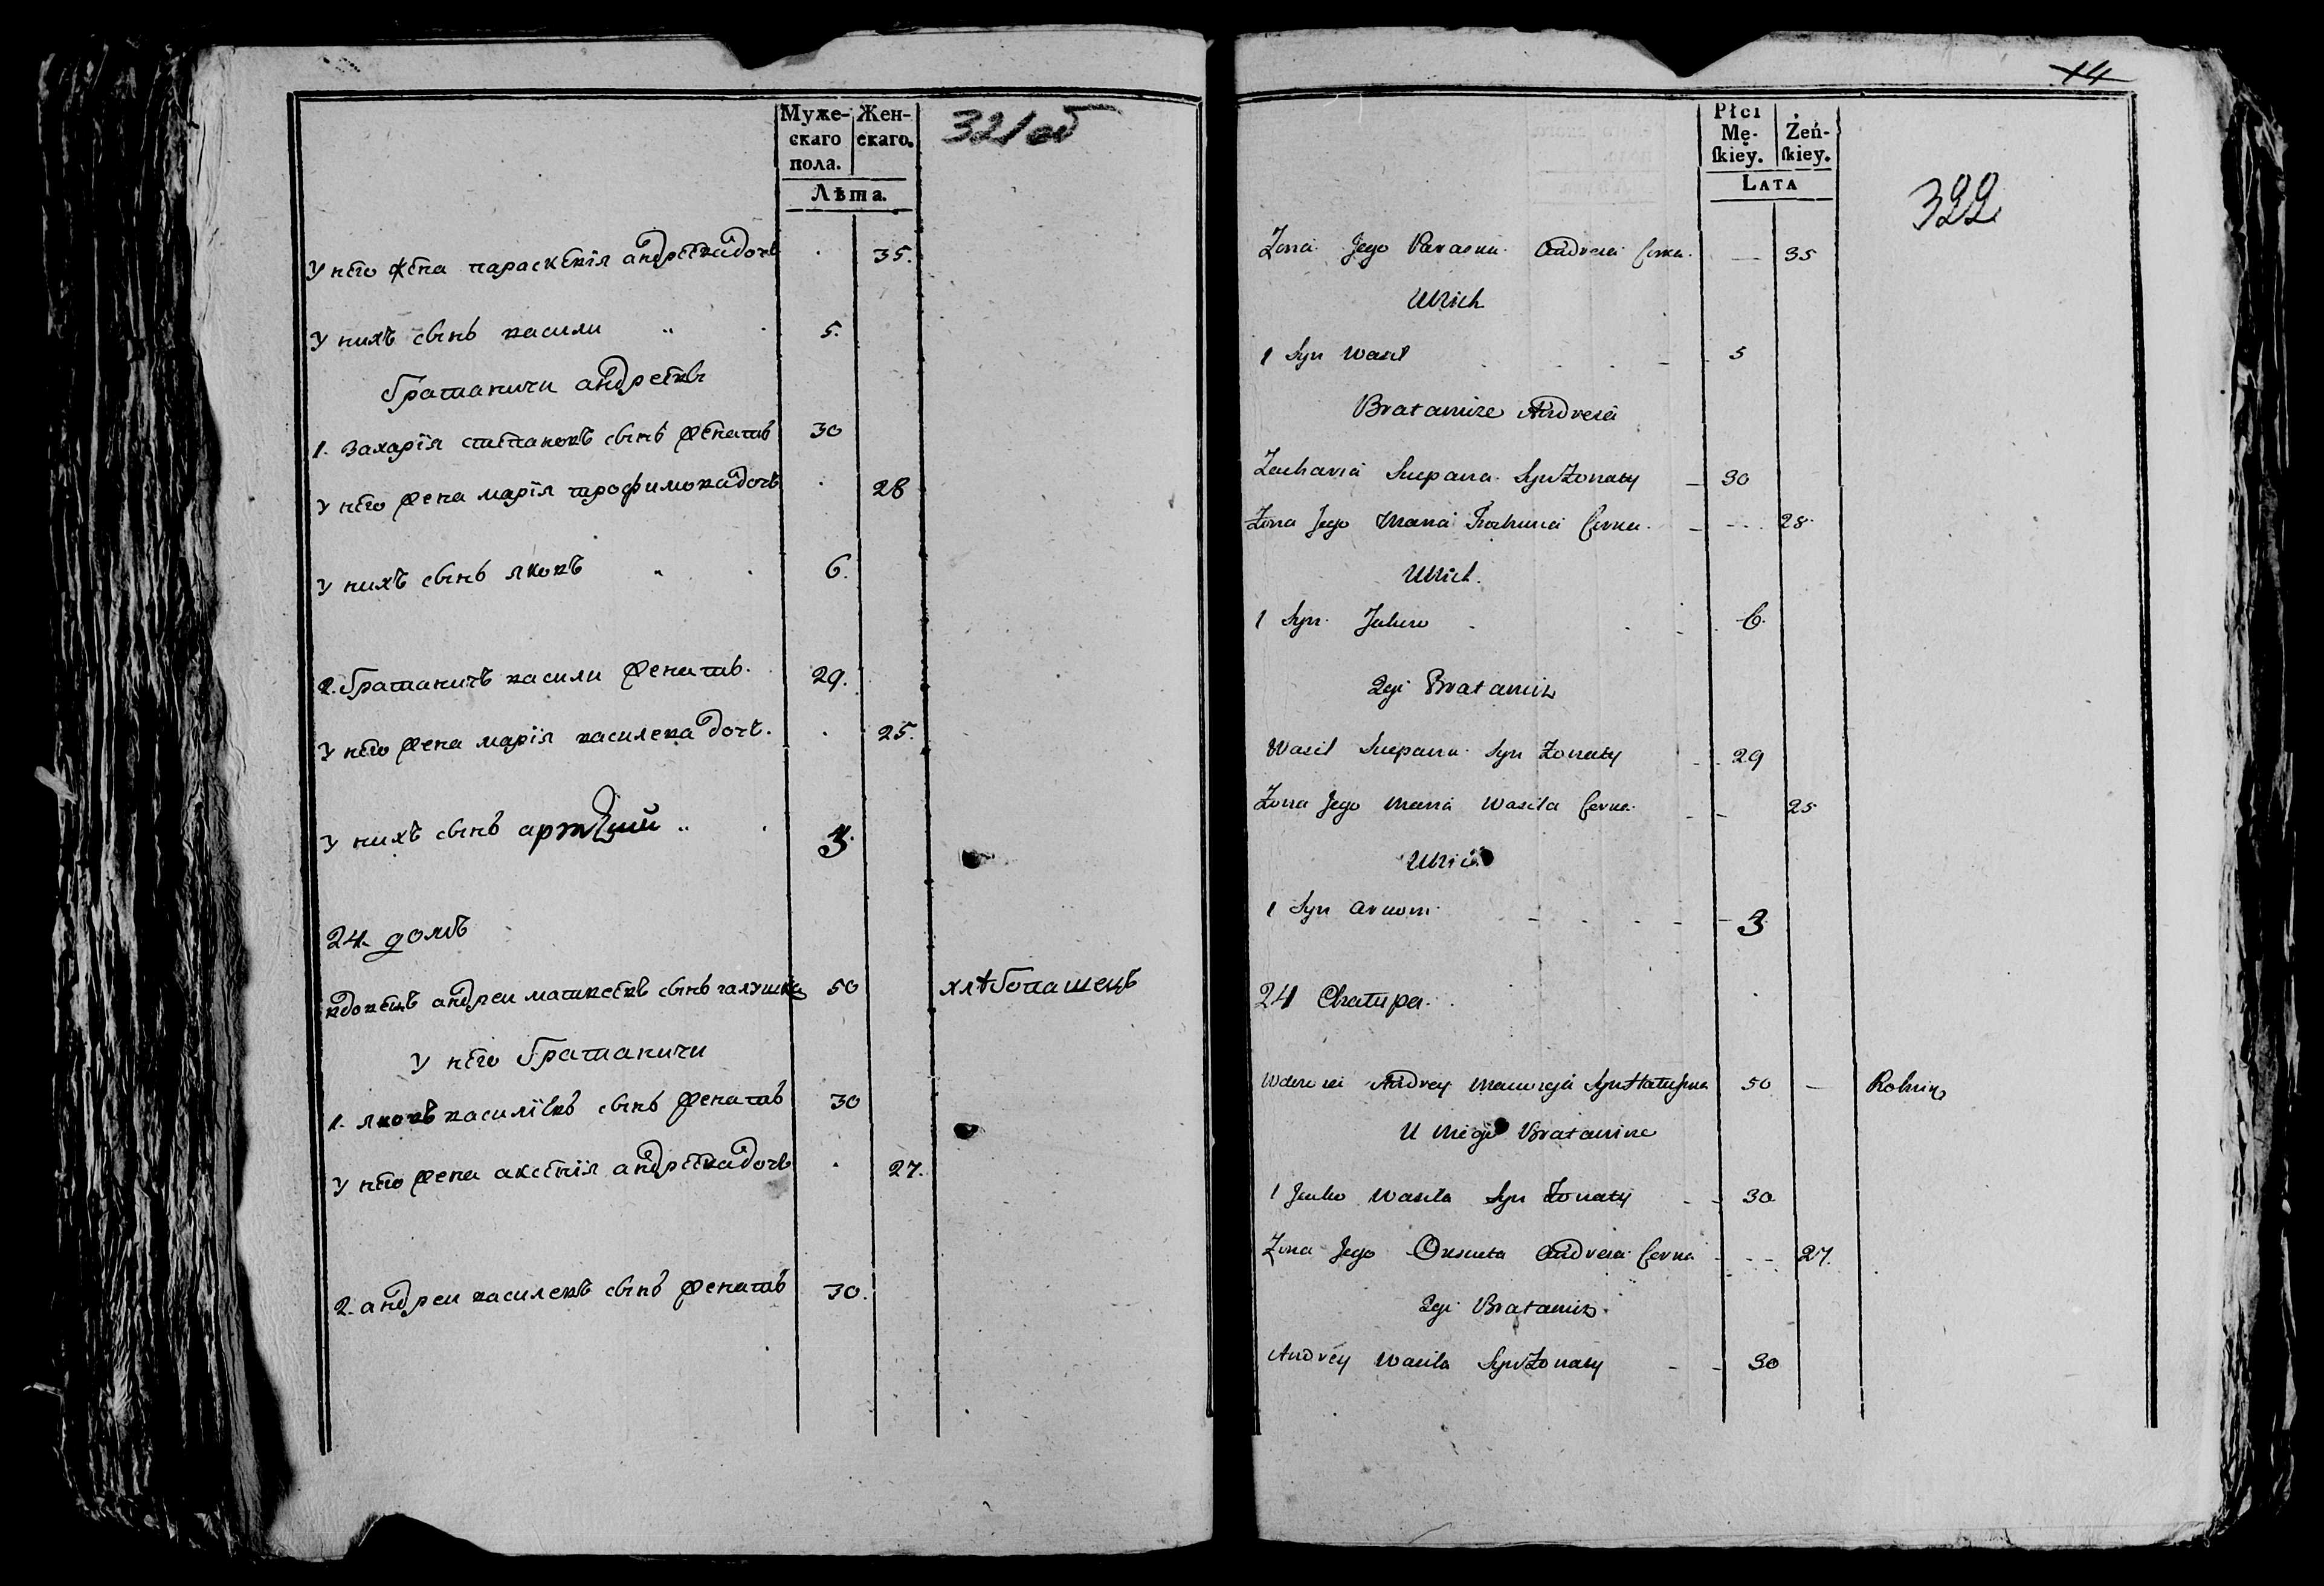 Муже-
скаго
пола.
Жен-
скаго.
Лѣта.
321 об
У него жена параскевія андреевадочь 35.
У нихъ сынъ васили 5.
братаничи андреевы
1. Захарія степановъ сынъ женатъ 30
У него жена марія трофимовадочь 28
У нихъ сынъ яковъ 6.
2. братаничъ васили женатъ. 29.
У него жена марія василева дочь. 25.
У нихъ сынъ 3.
24. домъ
вдовецъ андреи матвеевъ сынъ галушка 50 хлѣбопашецъ
У него братаничи
1. яковъ василіевъ сынъ женатъ 30
У него жена аксенія андреевадочь 27.
2. андреи василевъ сынъ женатъ 30.
14
Płci
Mę-
ſkiey.
Żeń-
ſkiey.
LATA
322
Zona Jego Paraska Andreia Corka. — 35
U Nich
1 Syn Wasil 5
Bratanice Andreia
Zacharia Stepana Syn Zonaty 30
Zona Jego Maria Corka. 28.
U Nich.
1 Syn 6.
2gi Bratanic
Wasil Stepana Syn Zonaty 29
Zona Jego Maria Wasila Corka. 25
U Nich
1 Syn Artiom 3
24 Chatupa.
Andrey Syn 50 — Rolnik
U Niego Bratanice
1 Wasila Syn Zonaty 30
Zona Jego Andreia Corka 27.
2gi Bratanic.
Andrey Wasila Syn Zonaty 30